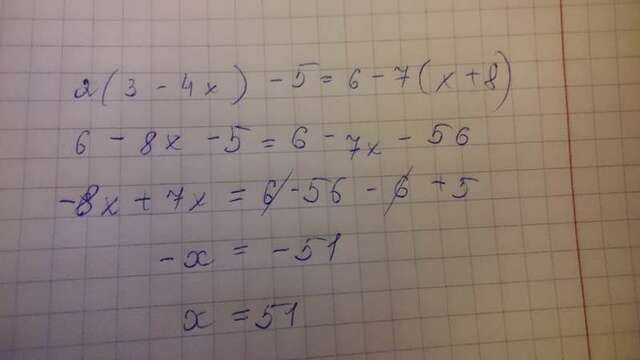 2(3 - 4x) - 5 = 6 - 7(x + 8)
6 - 8x - 5 = 6 - 7x - 56
-8x + 7x = 6 - 56 - 6 + 5
-x = -51
x = 51